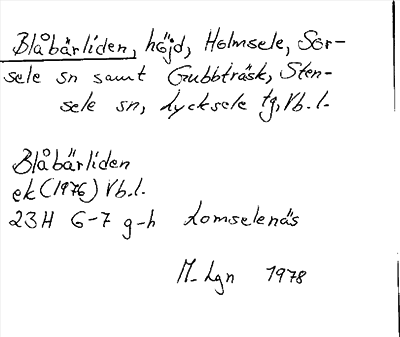 Blåbärliden, höjd, Holmsele, Sor-
sele sn samt Gubbträsk, Sten-
sele sn, Lycksele tg, Vb. l.
Blåbärliden
ek (1976) Vb.l.
23H 6-7 g-h Lomselenäs
M-Lgn 1978